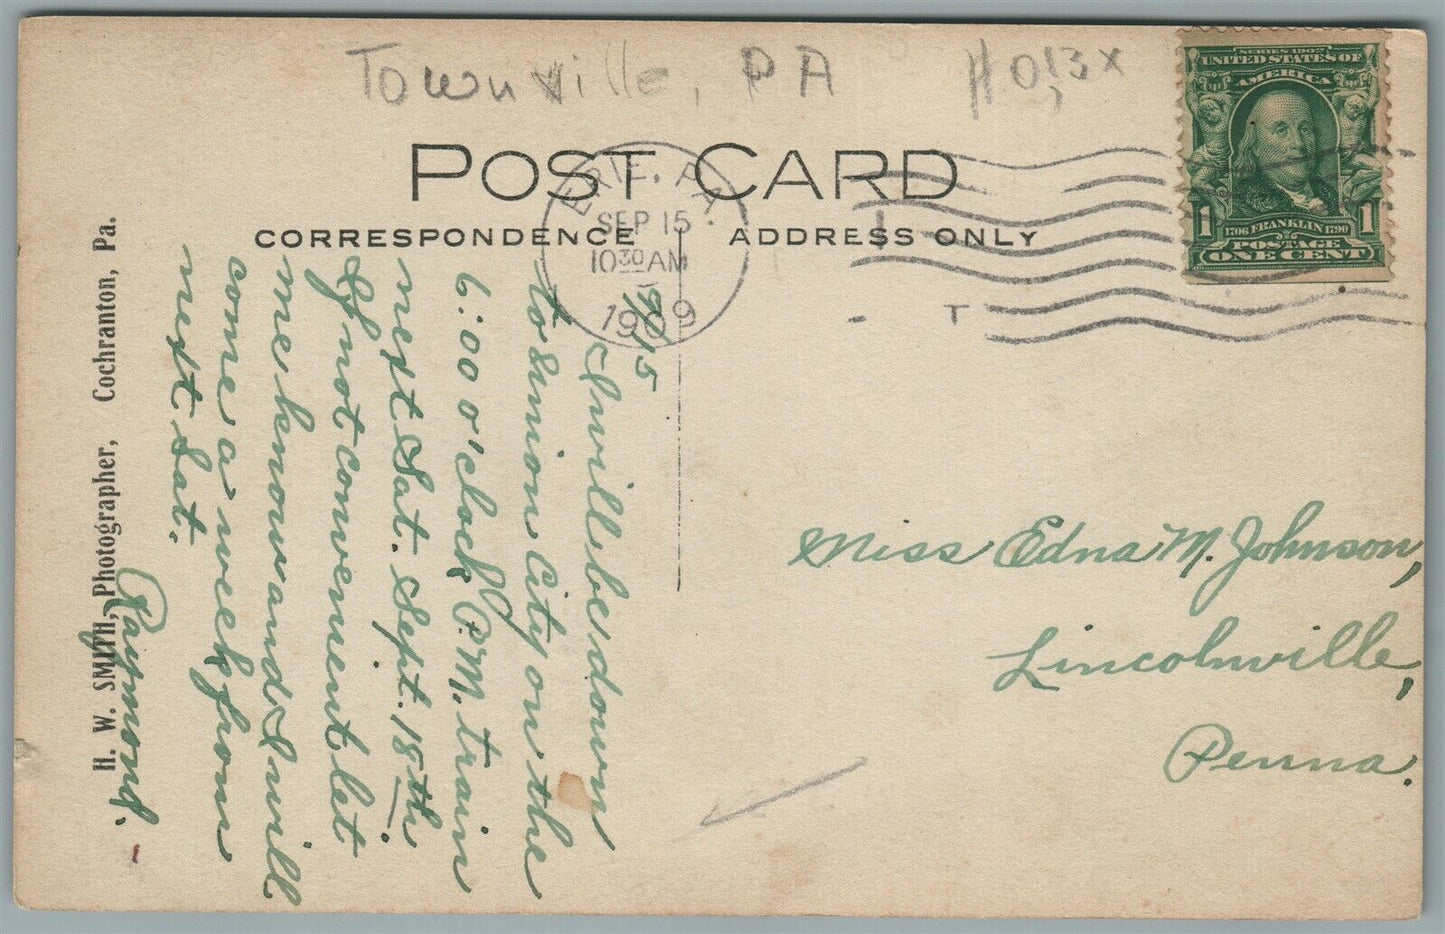 Townville, PA
POST CARD
CORRESPONDENCE
ADDRESS ONLY
ERIE, PA.
SEP 15
10 30 AM
1909
T
SERIES 1902
UNITED STATES OF
AMERICA
1
1706 FRANKLIN 1790
1
POSTAGE
ONE CENT
9/15
I will be down
to Union City on the
6:00 o'clock P.M. train
next Sat. Sept. 18th.
If not convenient let
me know and I will
come a week from
next Sat.
Raymond.
H. W. SMITH, Photographer, Cochranton, Pa.
Miss Edna M. Johnson,
Lincolnville,
Penna.